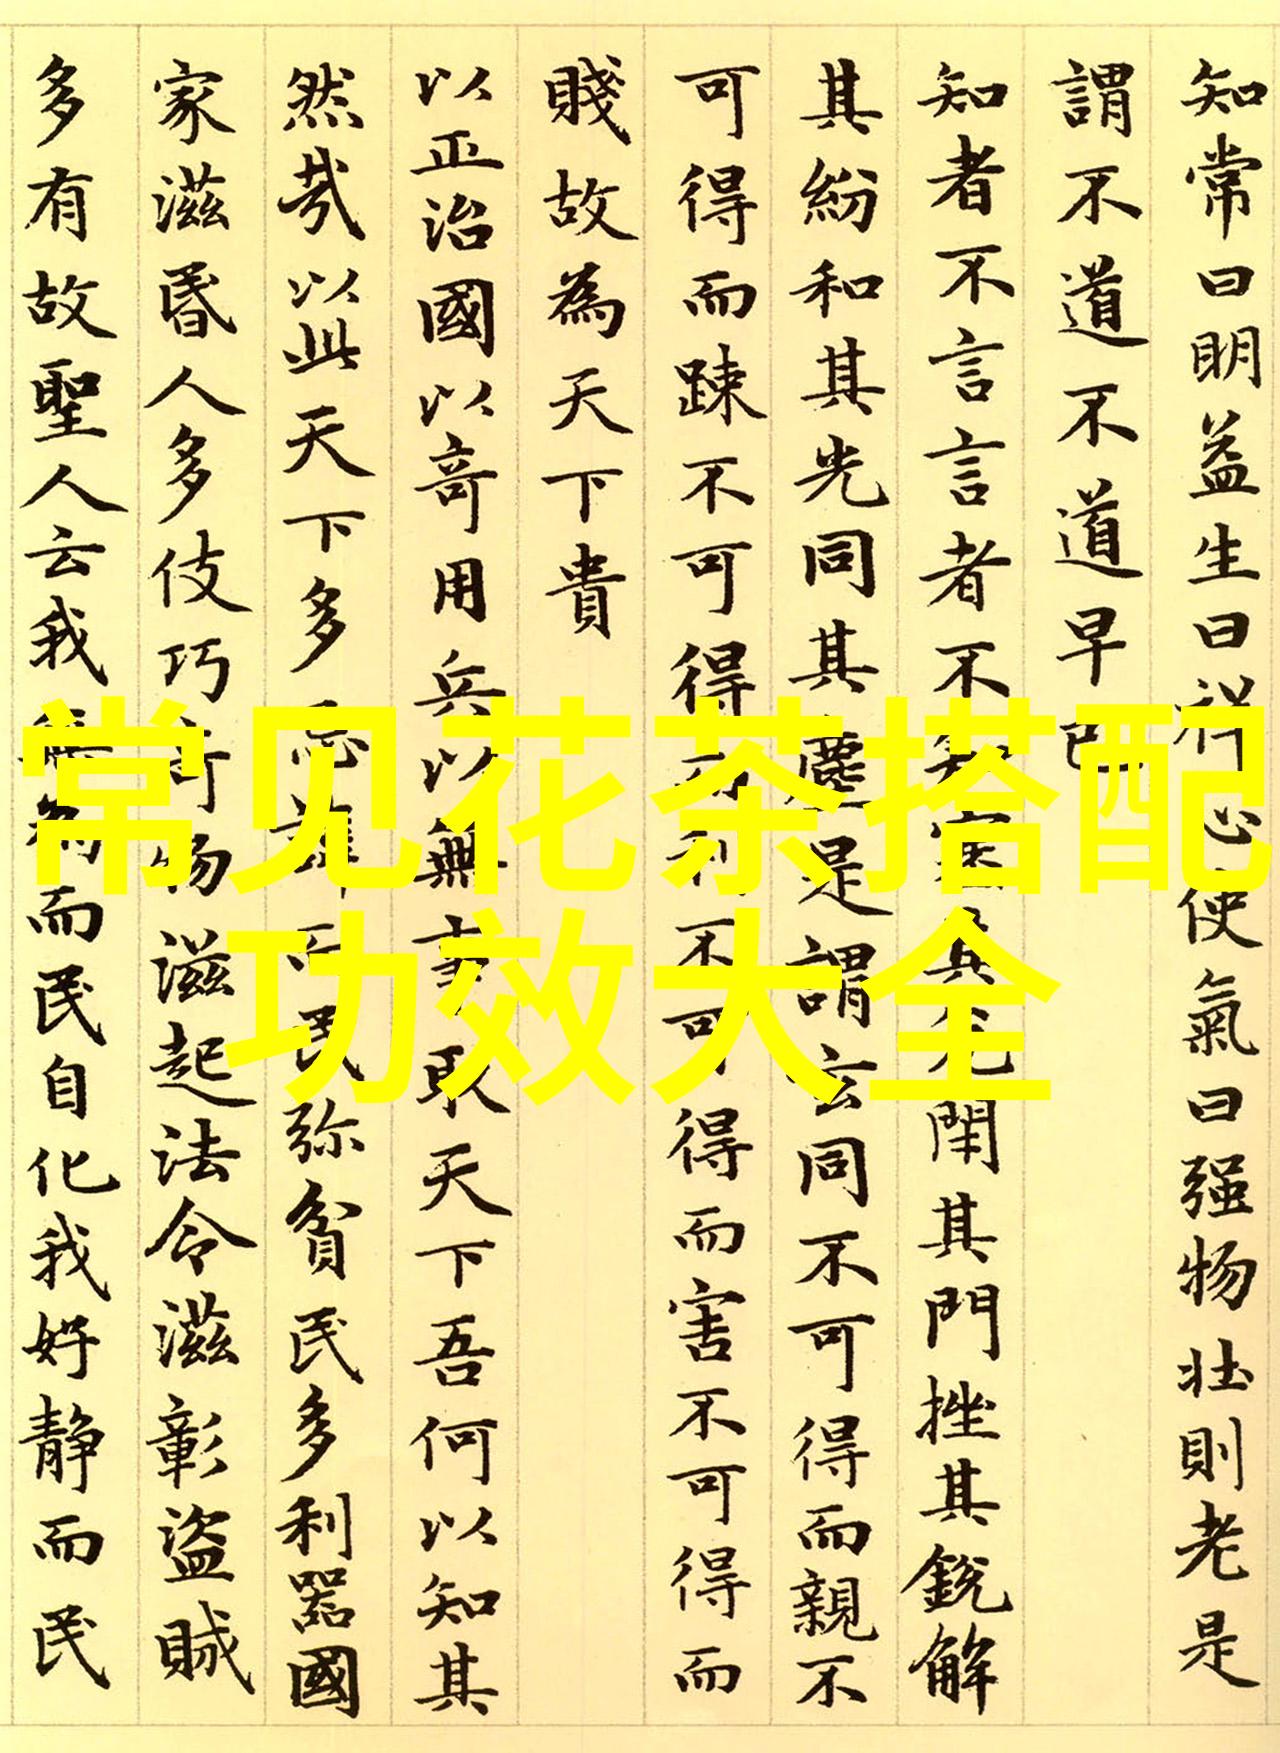 知常曰明益生曰祥心使氣曰强物壮則老是
謂不道不道早已
知者不言言者不知塞其兊閉其門挫其銳解
其紛和其光同其塵是謂玄同不可得而親不
可得而踈不可得而利不可得而害不可得而
賤故為天下貴
以正治國以竒用兵以無事取天下吾何以知其
然㢤以此天下多忌諱而民弥貧民多利器國
家滋昬人多伎巧竒物滋起法令滋彰盗賊
多有故聖人云我無為而民自化我好静而民
常见花茶搭配
功效大全